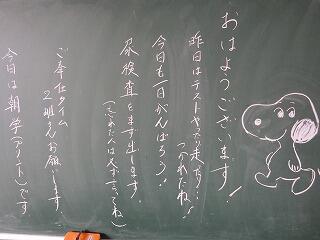 おはようございます!
昨日はテストやったり走ったり…
つかれたね!
今日も一日がんばろう!!
尿検査をまず出します。
(忘れた人は必ず言ってね)
ご奉仕タイム
2班さんお願いします
今日は朝学(プリント)です